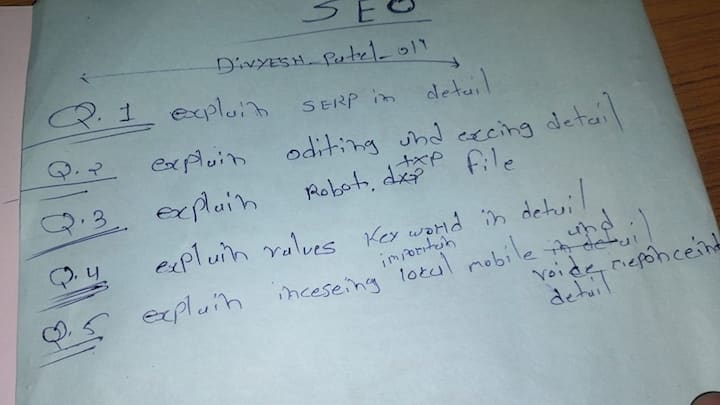 SEO
DiVYESH - Patel - 019
Q.1 explain SERP in detail
Q.2 explain oditing und excing detail
Q.3 explain Robot.txp file
Q.4 explain values Key world in detail
Q.5 explain inceseing importain local mobile und
voide
detail